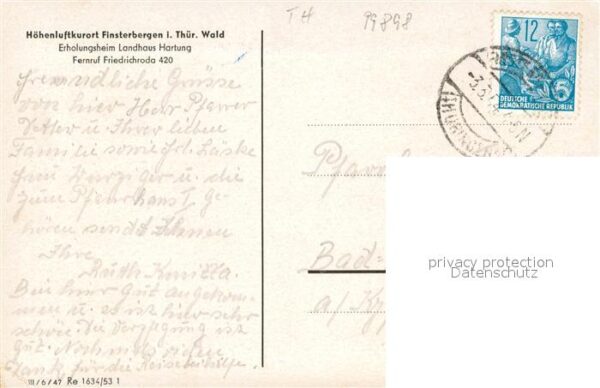 Höhenluftkurort Finsterbergen i. Thür. Wald
Erholungsheim Landhaus Hartung
Fernruf Friedrichroda 420
TH
99898
12
DEUTSCHE
DEMOKRATISCHE REPUBLIK
freundliche Grüsse
von hier Herr Pfarrer
u. Ihrer lieben
Familie sowie Frl.
Frau u. die
zum Pfarrhaus ge-
hören sendt Ihnen
Ihre
Ruth
Bin hier gut angekom-
men u. es ist hier sehr
schön. Die Verpflegung ist
gut. Nochmals vielen
Dank für die Reisebeihilfe.
Bad-
a/
privacy protection
Datenschutz
III/6/47 Re 1634/53 1